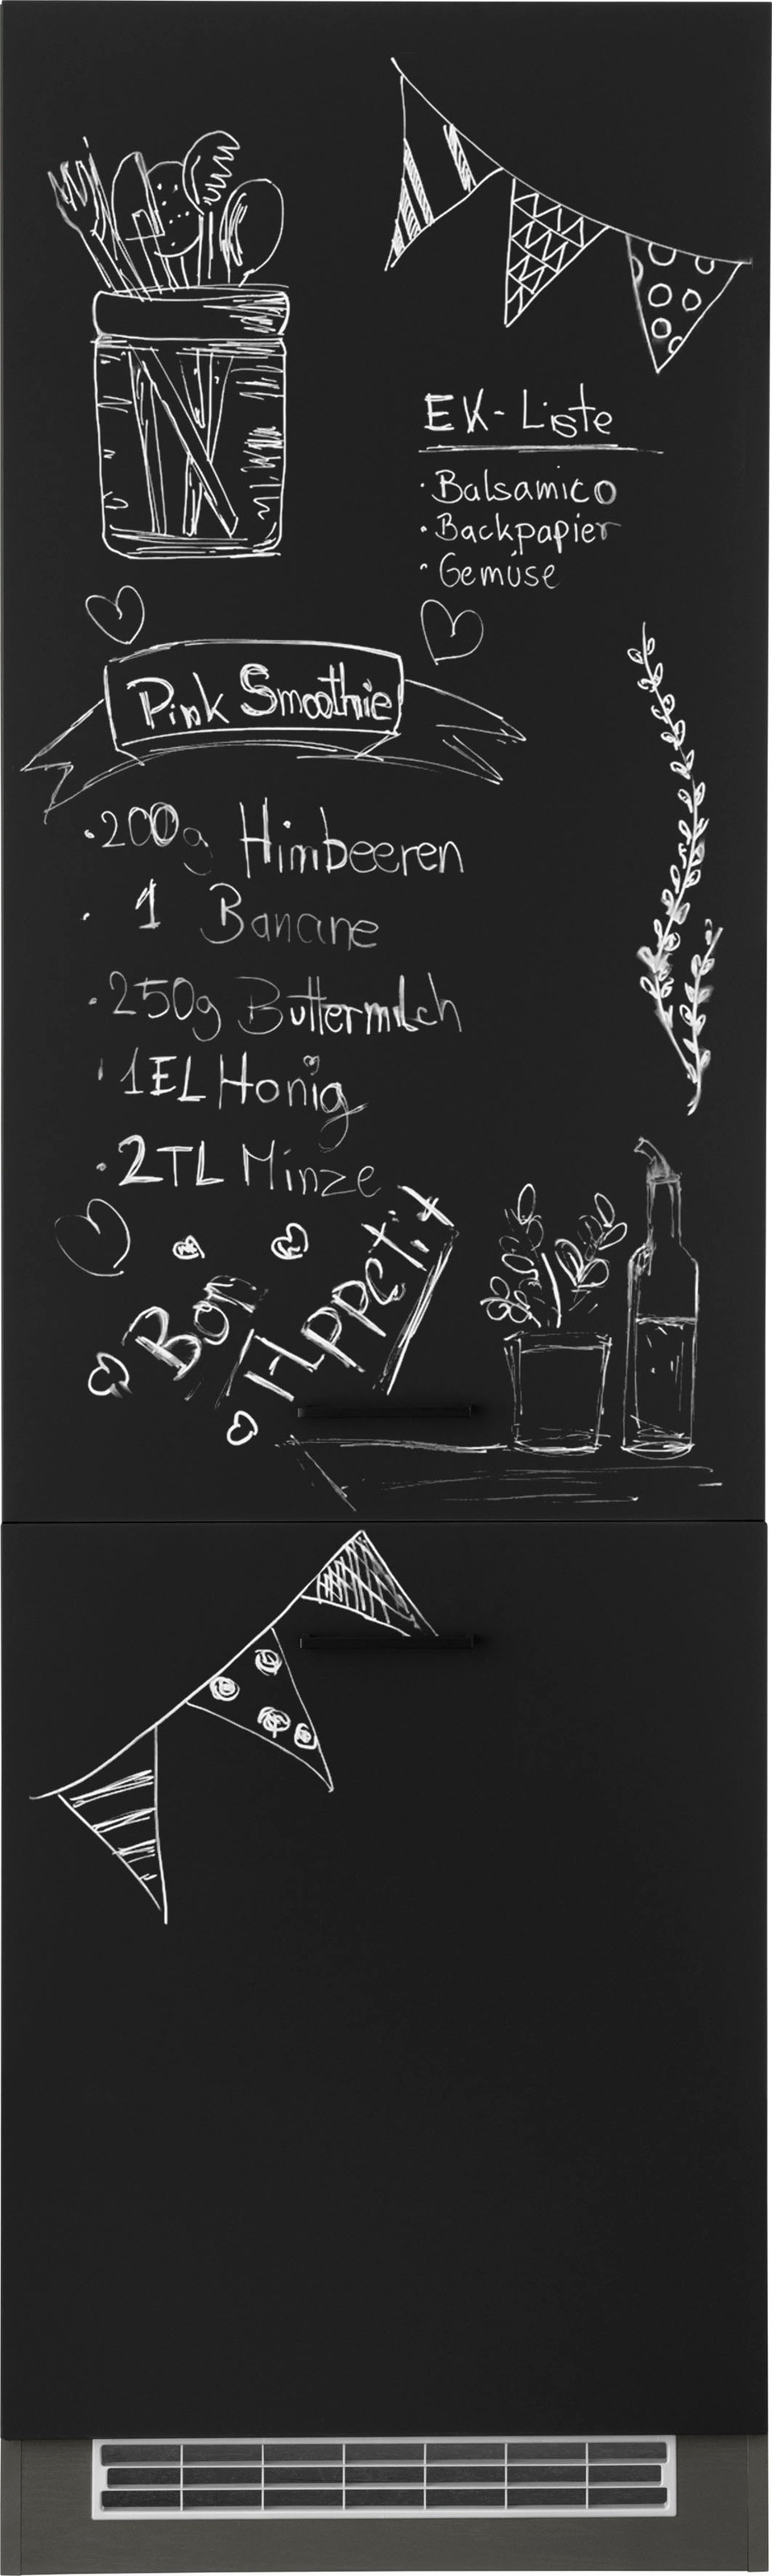 EK-Liste
· Balsamico
· Backpapier
· Gemüse
Pink Smoothie
· 200g Himbeeren
· 1 Banane
· 250g Buttermilch
· 1 EL Honig
· 2 TL Minze
Bon
Appetit